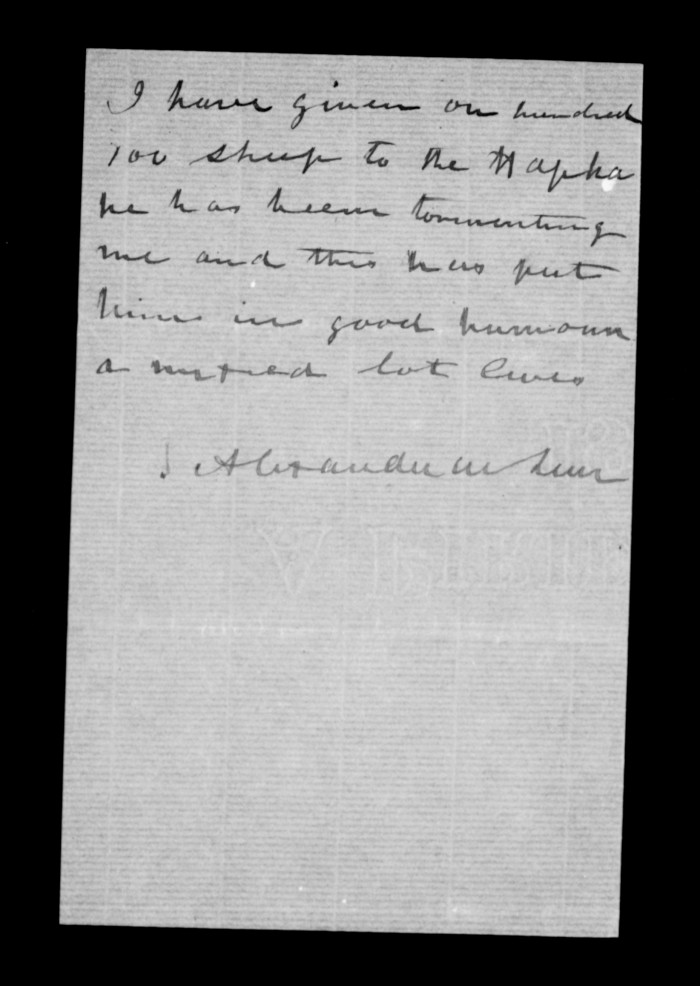 I have given on hundred
100 sheep to the Hapha
he has been tormenting
me and this has put
him in good humour
a mixed lot Ewes
Alexander